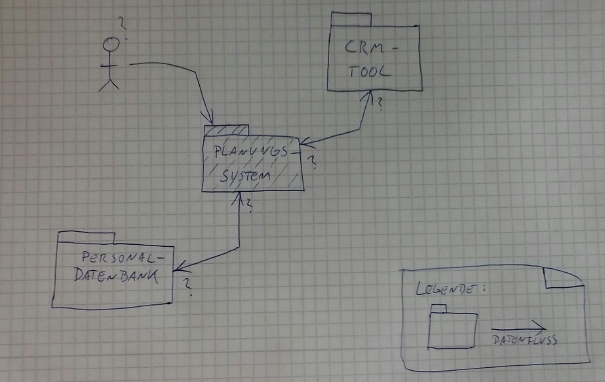 ?
CRM-
TOOL
?
PLANUNGS-
SYSTEM
?
?
PERSONAL-
DATENBANK
?
LEGENDE:
DATENFLUSS